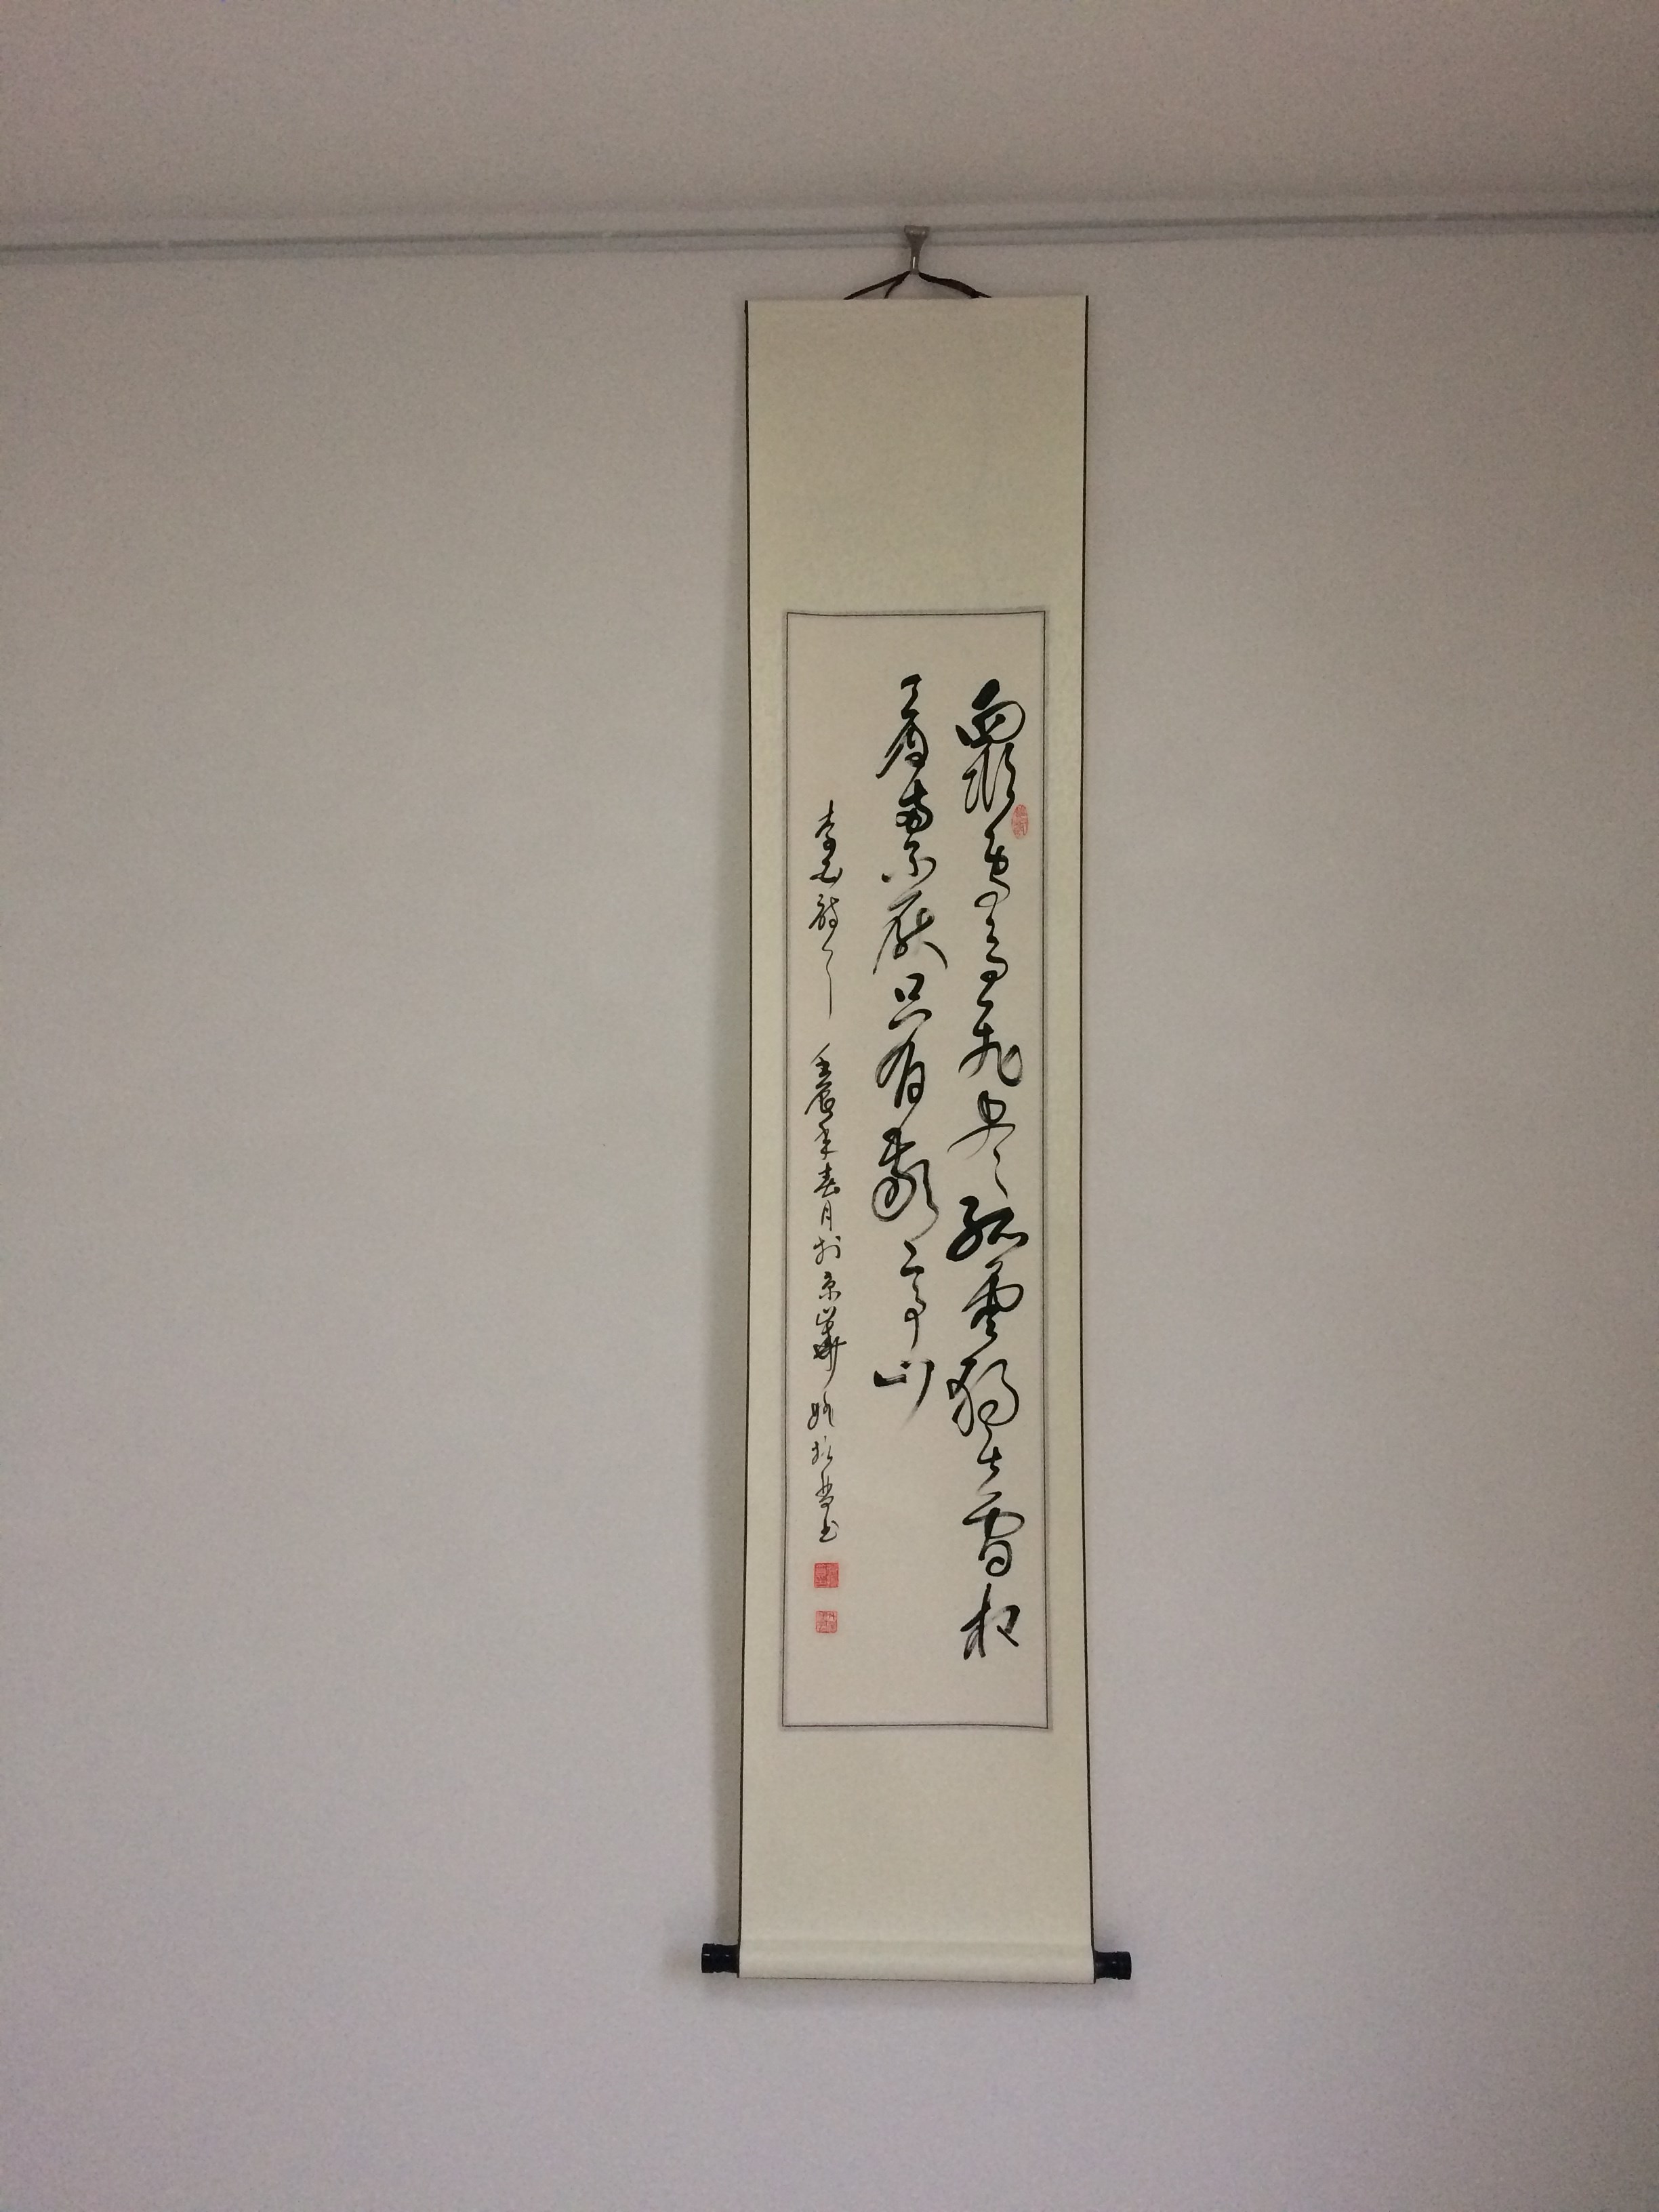 眾鳥高飛盡孤雲獨去閒相
看兩不厭只有敬亭山
李白詩一首 壬辰年春月於京華 姚書